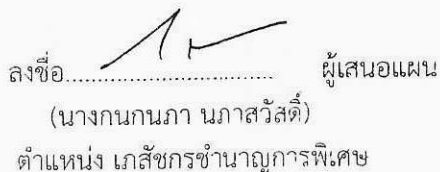 ลงชื่อ................................ ผู้เสนอแผน
(นางกนกนภา นภาสวัสดิ์)
ตำแหน่ง เภสัชกรชำนาญการพิเศษ